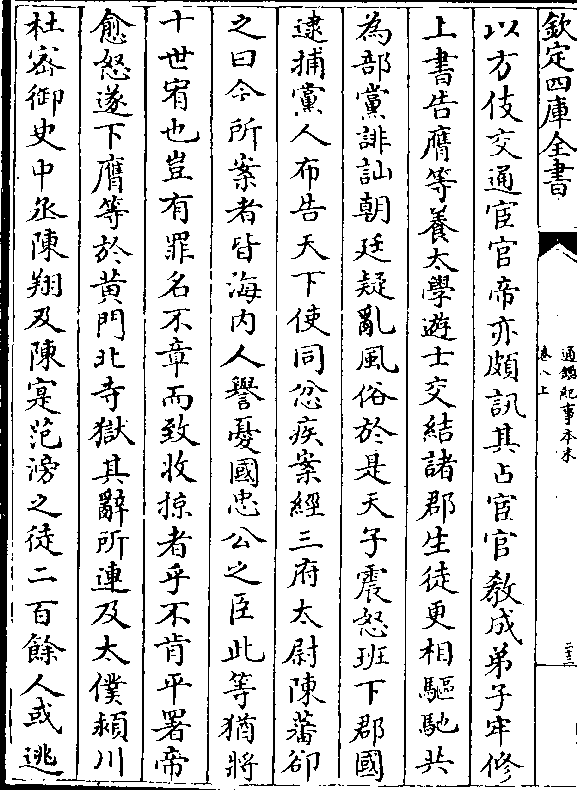 欽定四庫全書
通鑑紀事本末
卷八上
二十三
以方伎交通宦官帝亦頗訊其占宦官教成弟子牢修
上書告膺等養太學遊士交結諸郡生徒更相驅馳共
為部黨誹訕朝廷疑亂風俗於是天子震怒班下郡國
逮捕黨人布告天下使同忿疾案經三府太尉陳蕃卻
之曰今所案者皆海內人譽憂國忠公之臣此等猶將
十世宥也豈有罪名不章而致收掠者乎不肯平署帝
愈怒遂下膺等於黄門北寺獄其辭所連及太僕潁川
杜宻御史中丞陳翔及陳寔范滂之徒二百餘人或逃